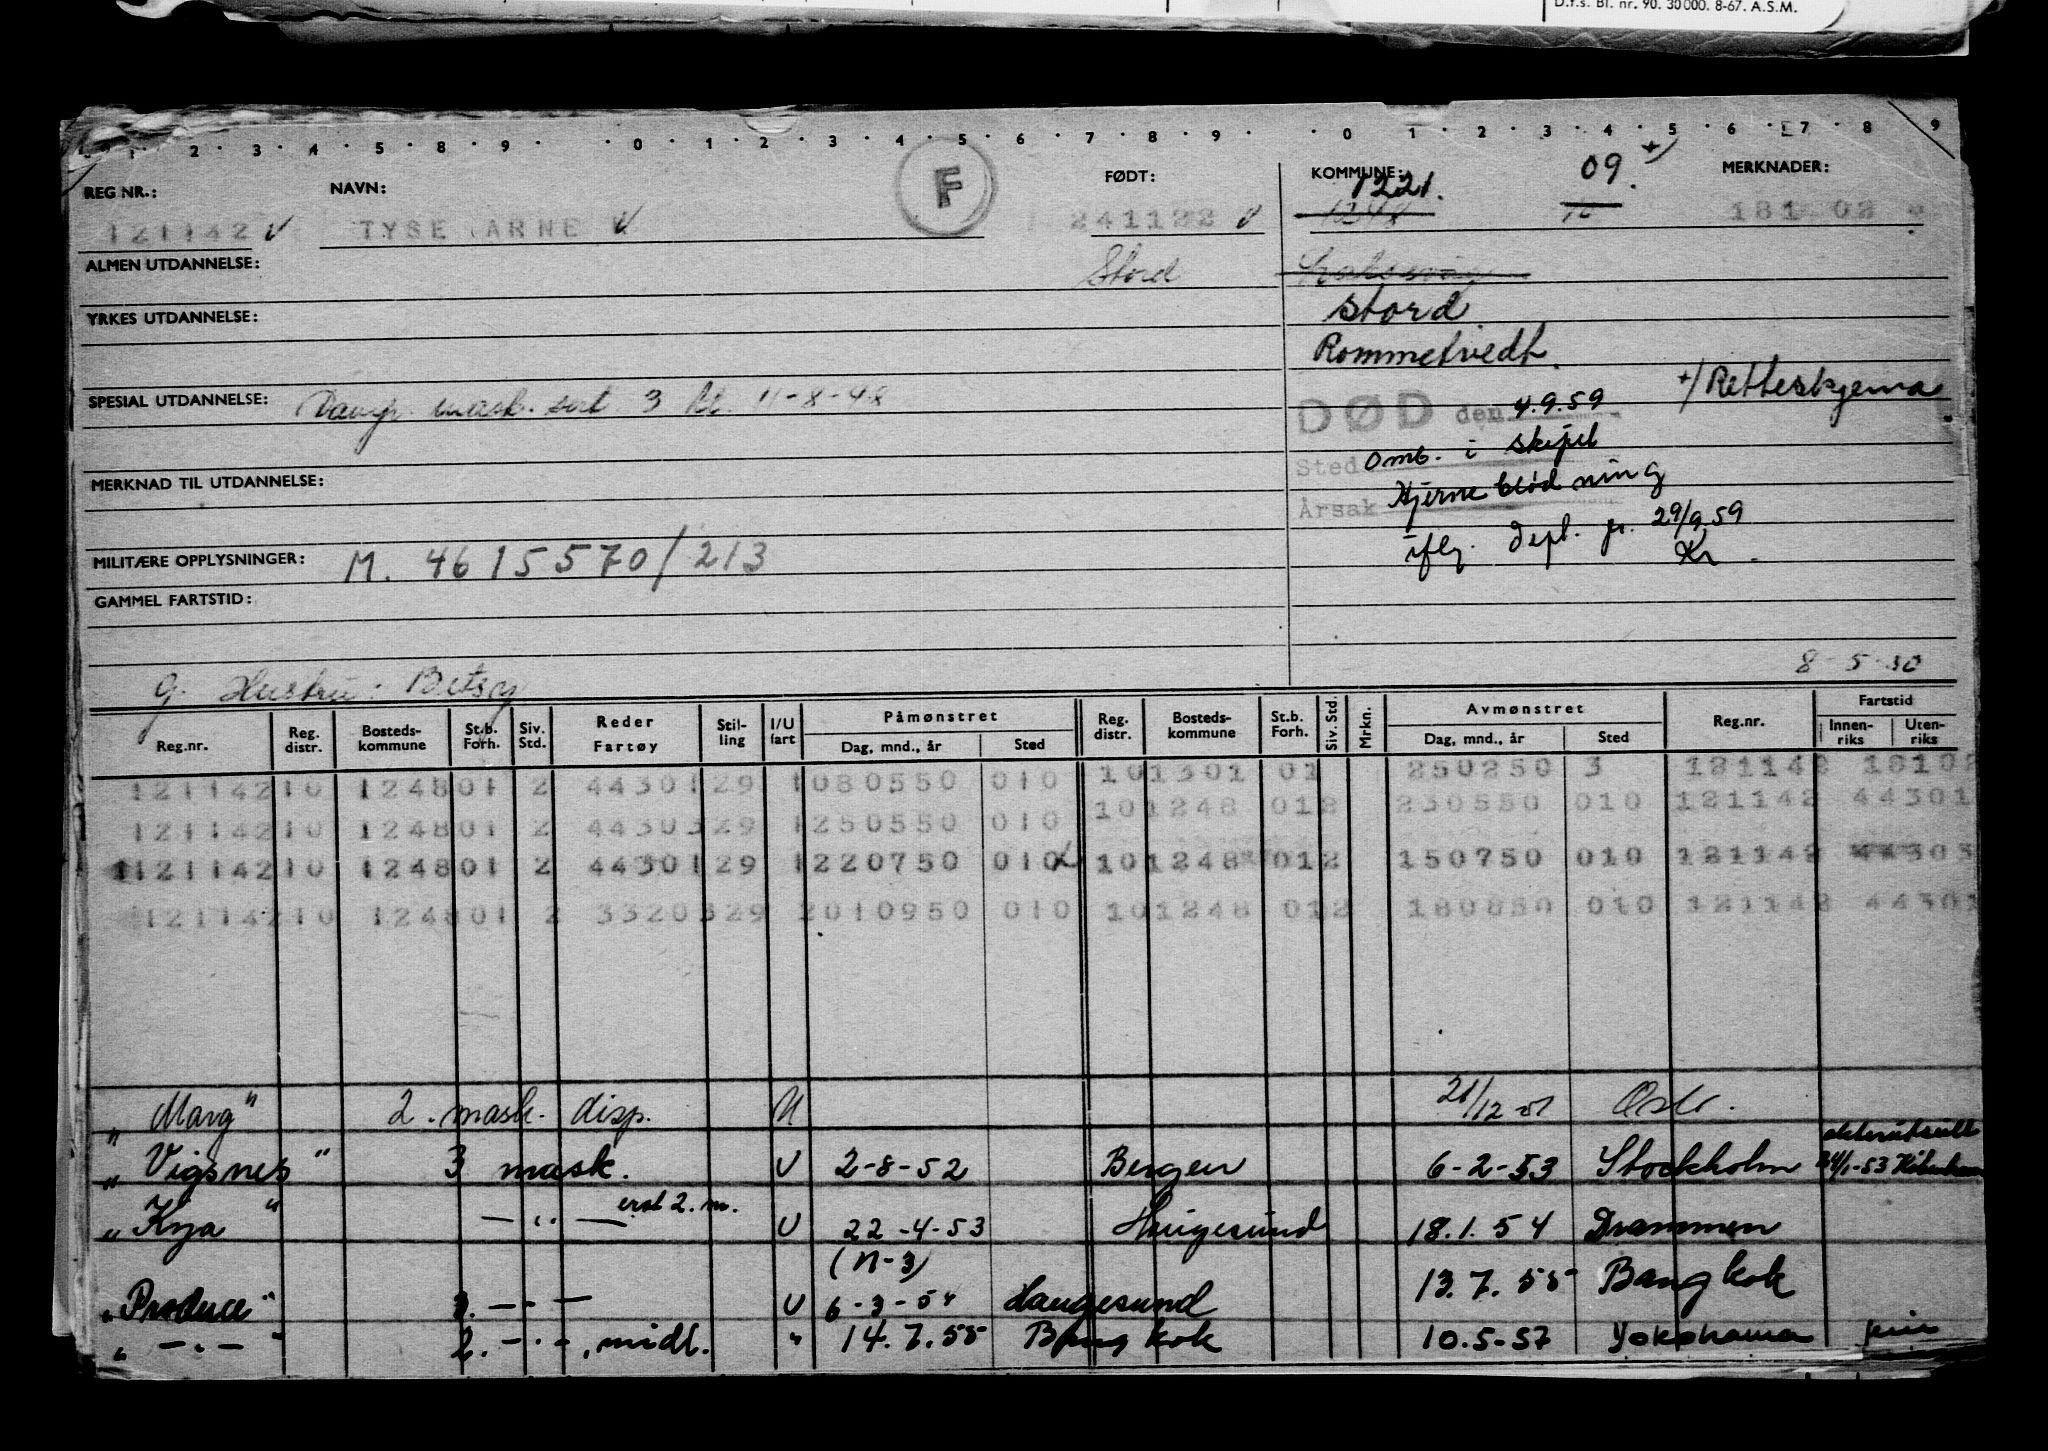 D.f.s. Bl. nr. 90. 30000. 8-67. A.S.M.
1 2 3 4 5 6 7 8 9 0 1 2 3 4 5 6 7 8 9 0 1 2 3 4 5 6 7 8 9
REG NR.: NAVN: F FØDT: KOMMUNE: 1221. 09. +/ MERKNADER:
121142 TYSE ARNE 241122 1248 10
ALMEN UTDANNELSE: Stord
Stord
YRKES UTDANNELSE: Rommetvedt.
+/ Retteskjema
SPESIAL UTDANNELSE: Damp. mask. sert 3 kl. 11-8-48
DØD den 4.9.59
Sted omb. i skipet
MERKNAD TIL UTDANNELSE:
Årsak Hjerneblødning
iflg. Dept. br. 29/9.59
Kr.
MILITÆRE OPPLYSNINGER: M. 4615570/213
GAMMEL FARTSTID:
8-5-50
g. Hustru: Betsy
Reg.nr. Reg. distr. Bosteds-kommune St.b. Forh. Siv. Std. Reder Fartøy Stil-ling I/U fart Påmønstret Dag, mnd., år Sted Reg. distr. Bosteds-kommune St.b. Forh. Siv. Std. Mrkn. Avmønstret Dag, mnd., år Sted Reg.nr. Fartstid Innen-riks Uten-riks
12114210 124801 2 4430129 1080550 010 101301 01 250250 3 121142 18102
12114210 124801 2 4430329 1250550 010 101248 012 230550 010 121142 44301
12114210 124801 2 4430129 1220750 010 101248 012 150750 010 121142 44303
12114210 124801 2 3320329 2010950 010 101248 012 180850 010 121142 44301
"Marg" 2. mask. disp. U 21/12 51 Oslo.
"Vigsnes" 3 mask. U 2-8-52 Bergen 6-2-53 Stockholm akterutseilt 24/1-53 København
"Kya" —"— erst 2. m. U 22-4-53 Haugesund 18.1.54 Drammen
(N-3)
"Produce" 3. —"— U 6-3-54 Haugesund 13.7.55 Bangkok
"—"—" 2. —"—, midl. " 14.7.55 Bangkok 10.5-57 Yokohama